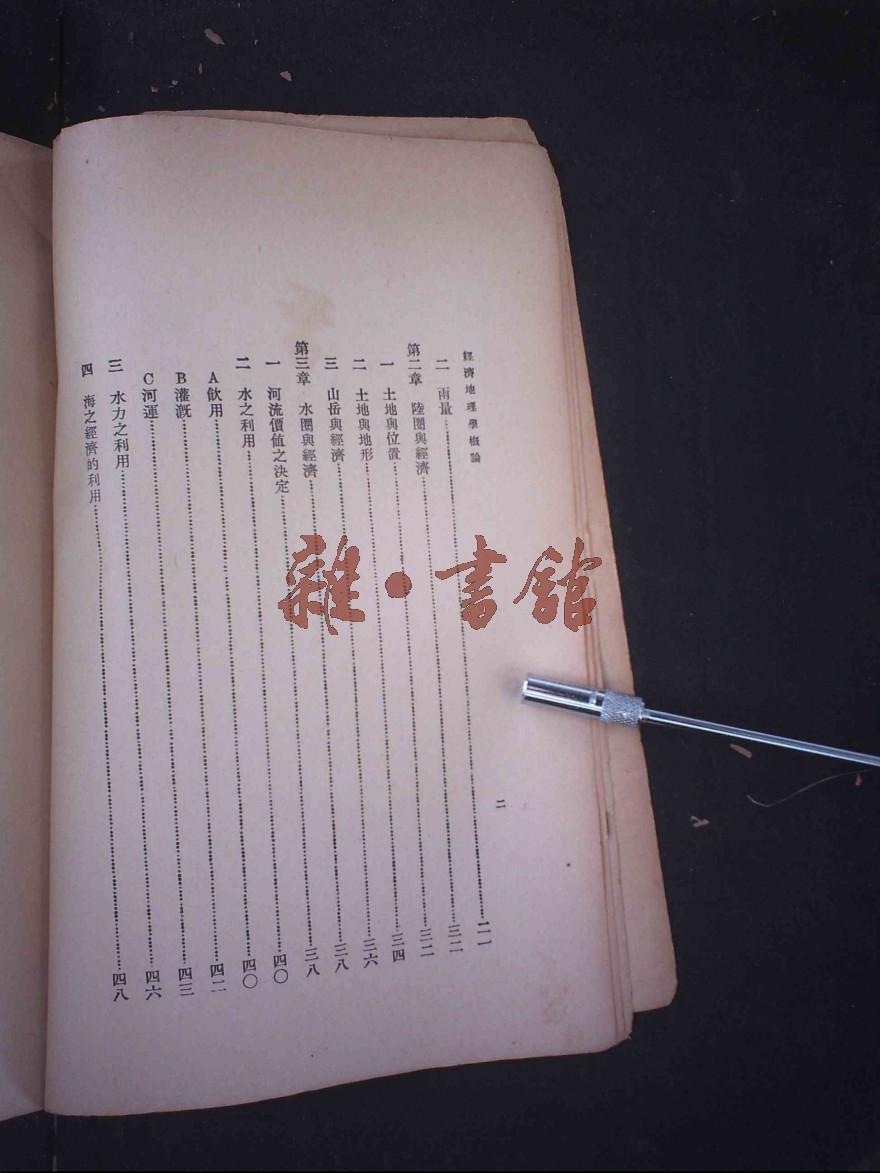 經濟地理學概論
二
二 雨量……二一
第二章 陸圈與經濟……三二
一 土地與位置……三二
二 土地與地形……三四
三 山岳與經濟……三六
第三章 水圈與經濟……三八
一 河流價値之決定……三八
二 水之利用……四〇
A 飲用……四〇
B 灌漑……四二
C 河運……四三
三 水力之利用……四六
四 海之經濟的利用……四八
雜·書館